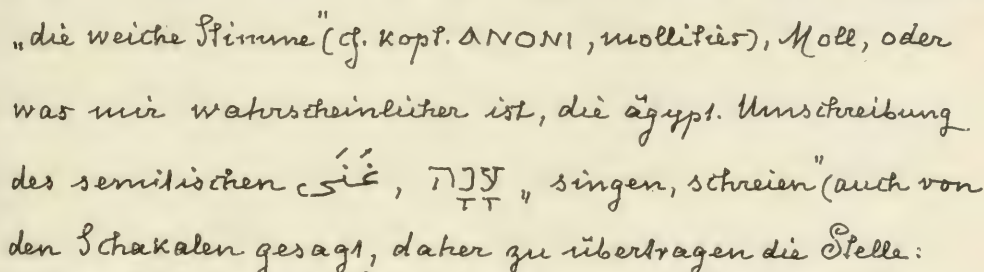 „die weiche Stimme“ (cf. kopt. ANONI, mollities), Moll, oder
was mir wahrscheinlicher ist, die ägypt. Umschreibung
des semitischen غَنَى, עָנָה „singen, schreien“ (auch von
den Schakalen gesagt, daher zu übertragen die Stelle: